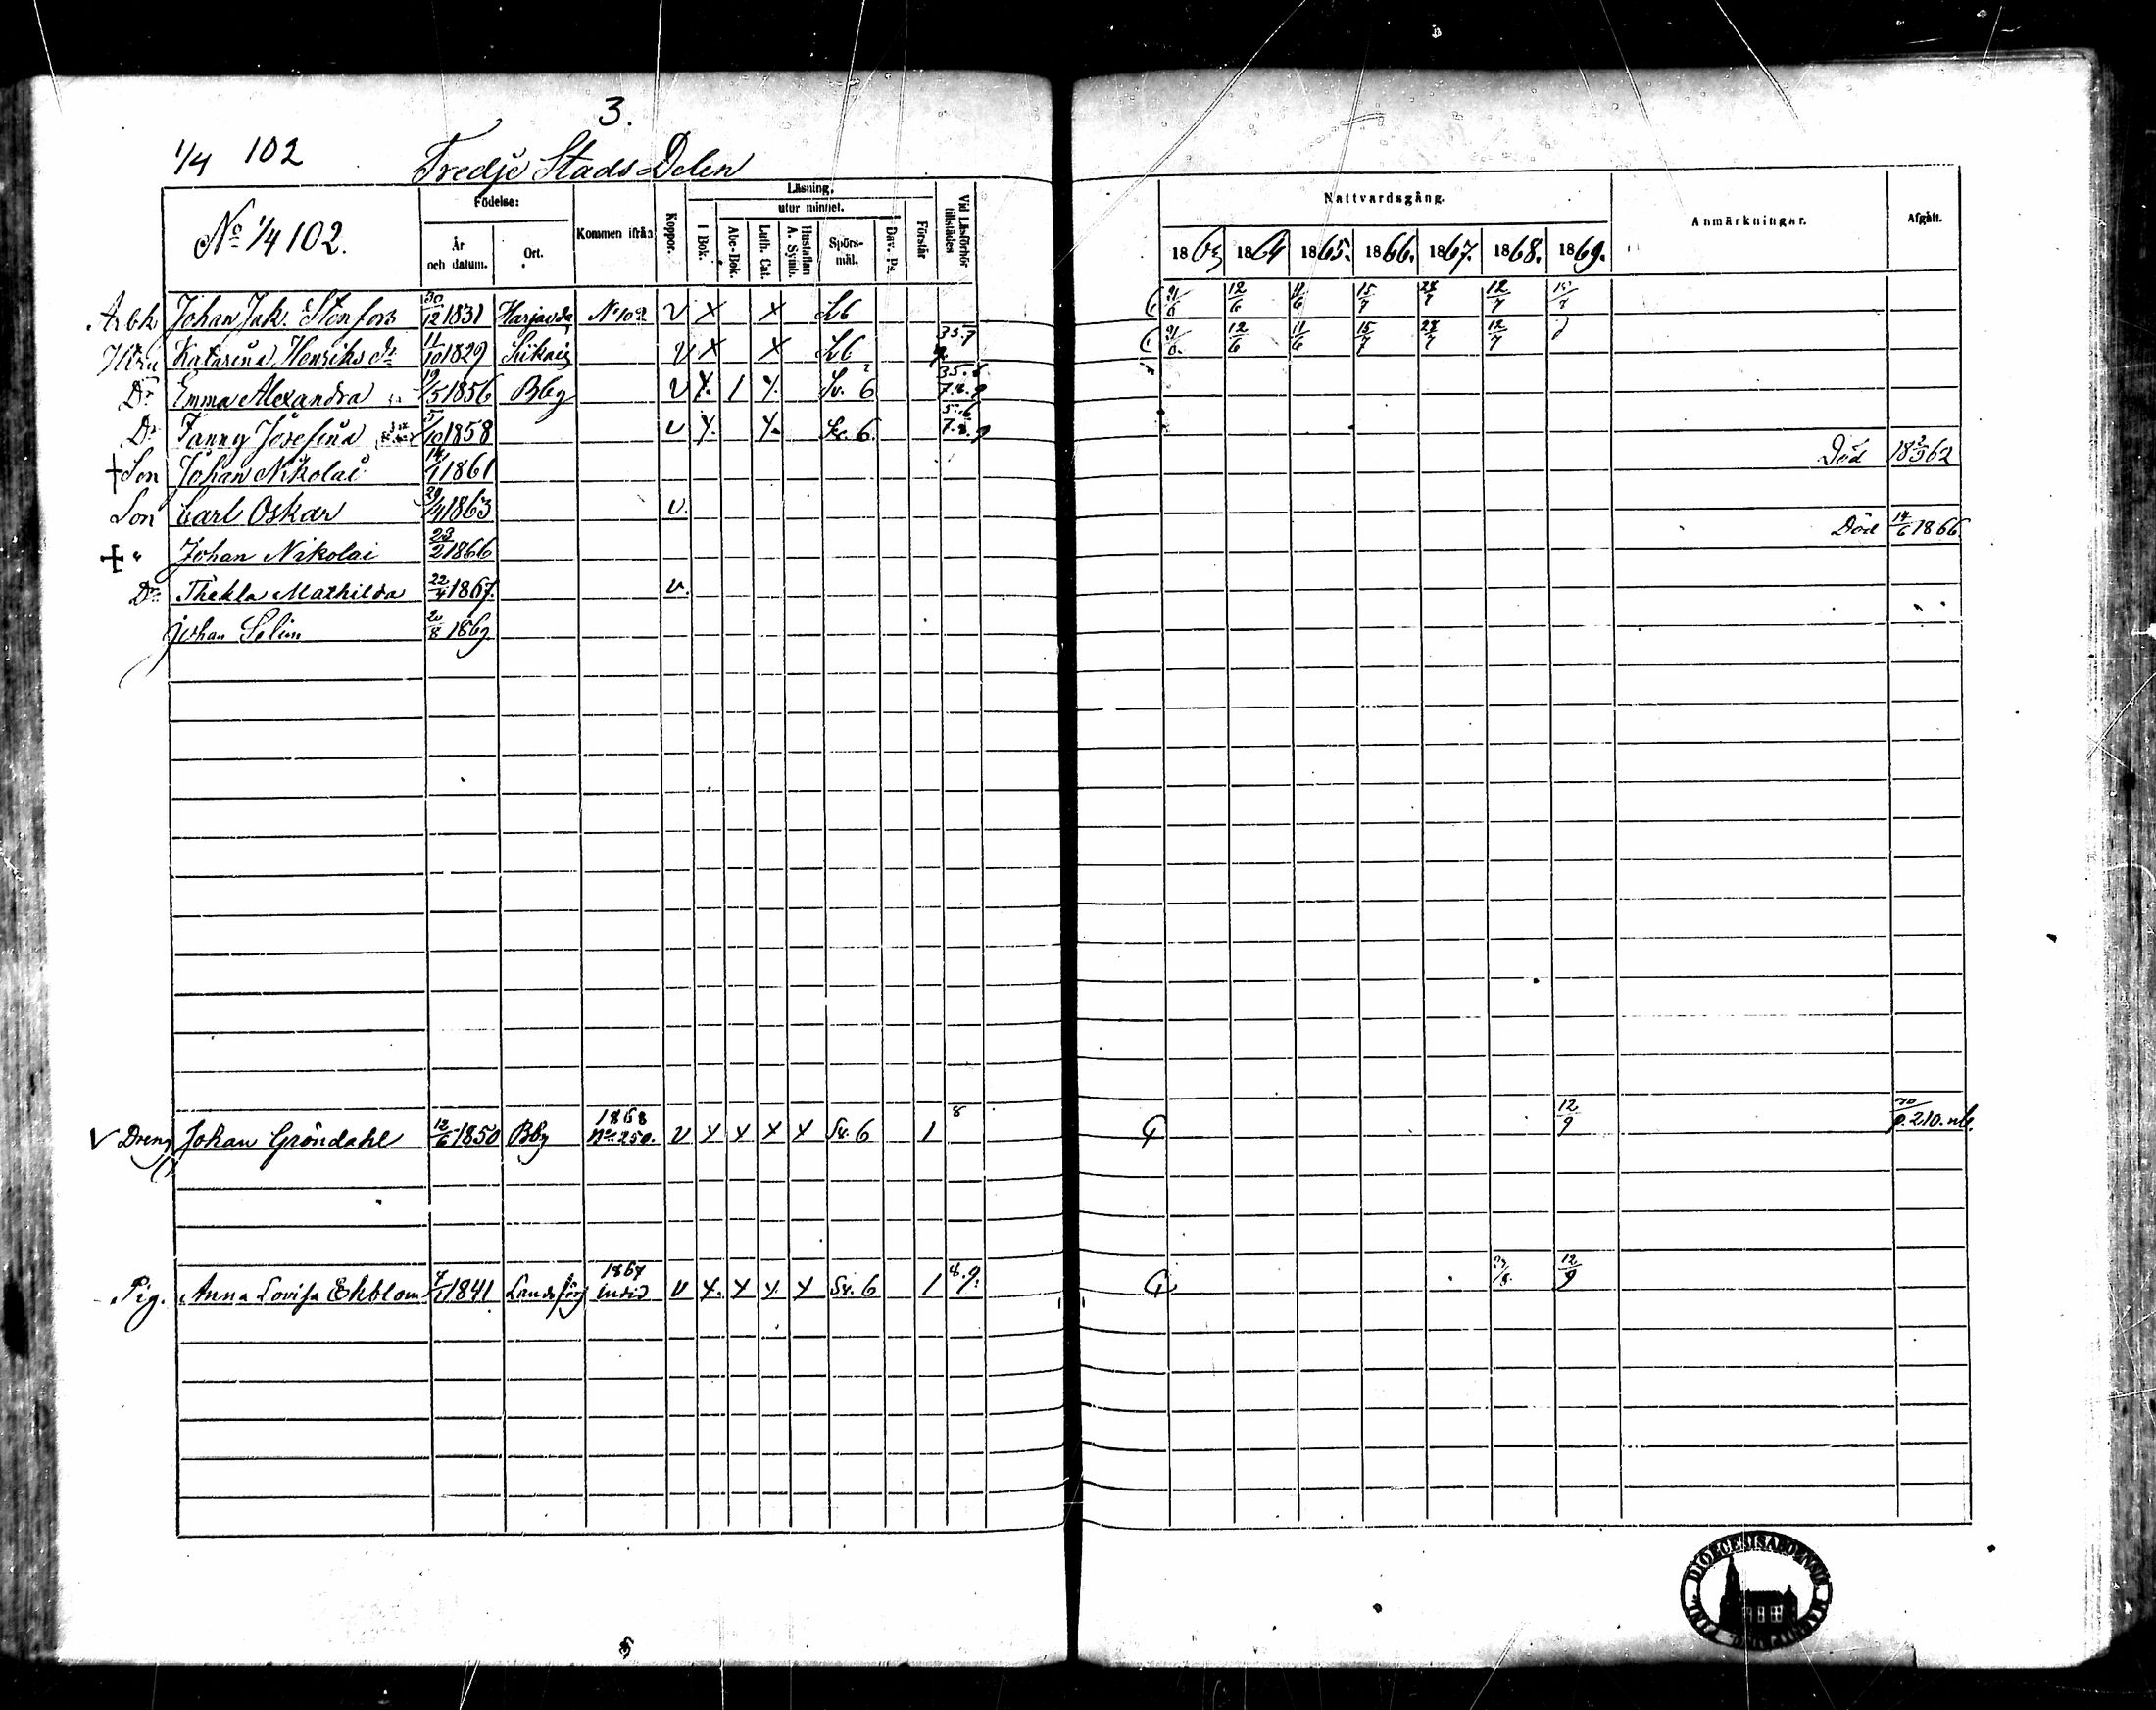 3.
1/4 102 Tredje Stads Delen
No 1/4 102.
Födelse:
År och datum.
Ort.
Kommen ifrån
Koppor.
Läsning,
I Bok.
utur minnet.
Abc-Bok.
Luth. Cat.
Hustaflan A. Symb.
Spörsmål.
Dav. Ps.
Förstår
Vid Läsförhör tillstädes
Nattvardsgång.
1863 1864 1865. 1866. 1867. 1868. 1869.
Anmärkningar.
Afgått.
Arbk Johan Jak. Stenfors 30/12 1831 Harjavda No 102 V X X 12/6 11/6 15/7 12/7
Hstru Katarina Henriks dr 11/10 1829 V X X 12/6 11/6 15/7 12/7
Dr Emma Alexandra 19/5 1856 Bbg V X 1 X Sv. 6 7.8.9
Dr Fanny Josefina 5/10 1858 V X X Sv. 6. 7.8.9
† Son Johan Nikolai 14/1 1861 Död 18 2/9 62
Son Carl Oskar 29/4 1863 V.
† " Johan Nikolai 23/2 1866 Död 14/6 1866.
Dr Thekla Mathilda 22/4 1867. V.
Johan Selim 1869
V Dreng Johan Gröndahl 12/6 1850 Bbg 1868 No 250. V X X X X Sv. 6 1 8 G 12/9 p. 210. nb.
Pig. Anna Lovisa Ekblom 7/1 1841 Landsförs 1867 V X. X X. X Sv. 6 1 8.9. G 12/9